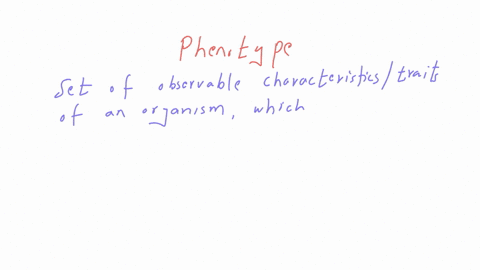 Phenotype
Set of observable characteristics/traits
of an organism, which